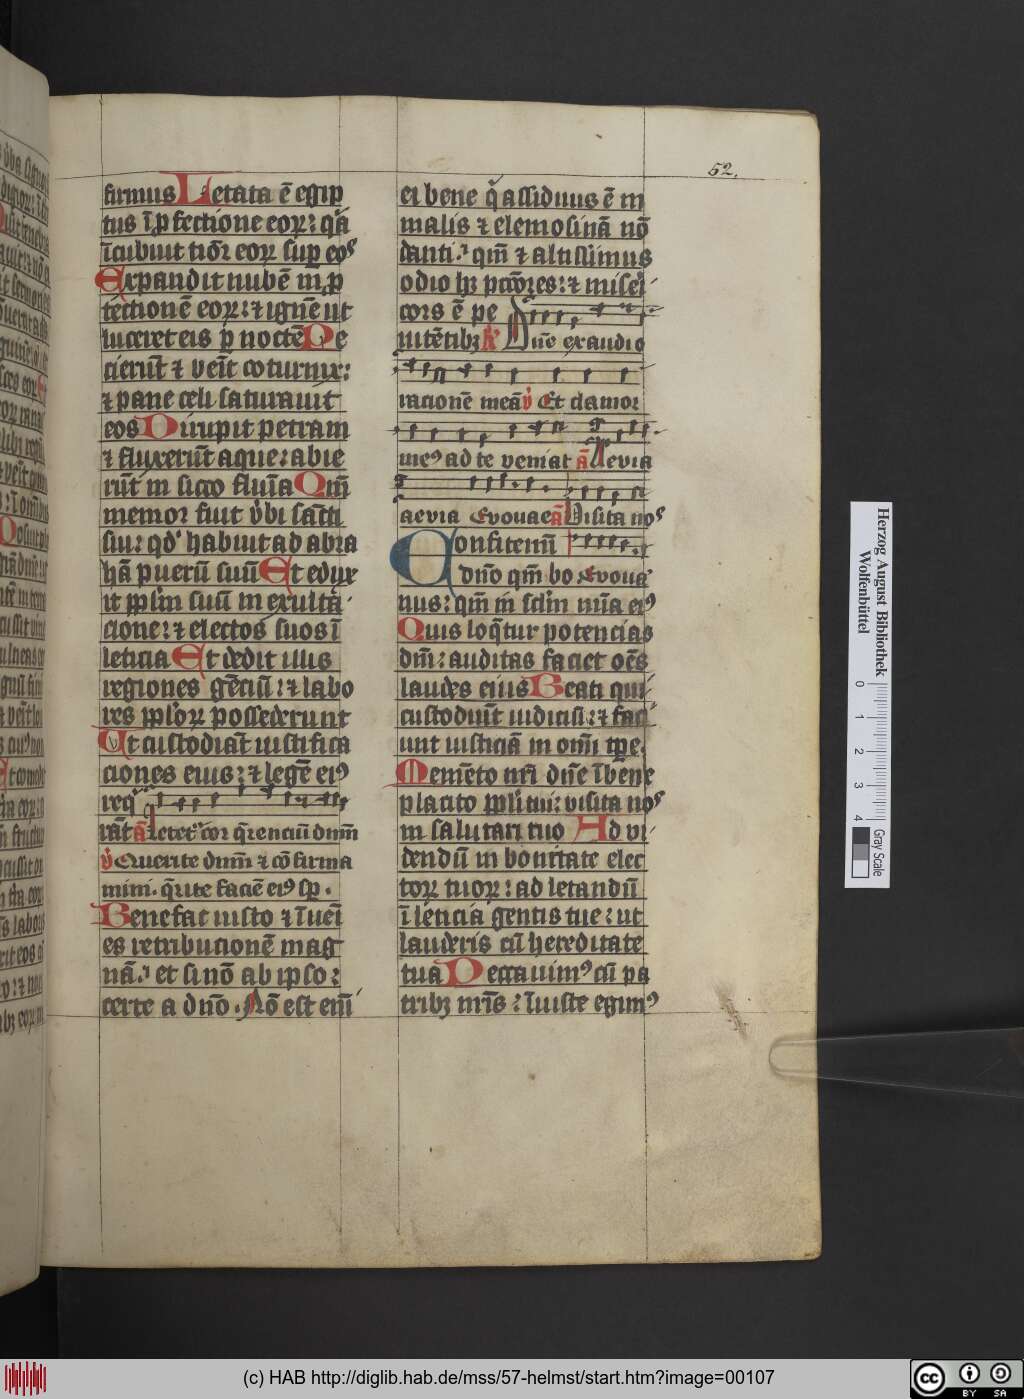 52.
firmus Letata ē egip
tus ī ꝑfectione eoꝝ: q̄a
īcubuit timor̄ eoꝝ suꝑ eos
Expandit nubē in ꝓ
tectionē eoꝝ: ⁊ ignē ut
luceret eis ꝑ noctē Pe
cierūt ⁊ venīt coturnix:
⁊ pane celi saturauit
eos Dirupit petram
⁊ fluxerūt aque: abie
rūt in sicco flumīa Qm̄
memor fuit v̇bi sancti
sui: qd' habuit ad abra
hā puerū suū Et eduxe
it pp̄lm̄ suū in exulta
cione: ⁊ electos suos ī
leticia Et dedit illis
regiones gēciū: ⁊ labo
res pp̄loꝝ possederunt
Ut custodiāt iustifica
ciones eius: ⁊ legē eiꝰ
req̇
rāt ā Letet' cor q̄renciū dnm̄
v̇ Querite dnm̄ ⁊ cōfirma
mini. q̄rite faciē eiꝰ sꝑ.
Benefac iusto ⁊ īueī
es retribucionē mag
nā: et si nō ab ipso:
certe a dn̄o. Nō est em̄
ei bene q̄ assiduus ē in
malis ⁊ elemosinā nō
danti: qm̄ ⁊ altissimus
odio hꝫ pctōres: ⁊ miser
cors ē pe
nitētibꝫ R' Dn̄e exaudi o
racionē meā v̇ Et clamor
meꝰ ad te veniat ā Aevia
aevia Evouae ā Visita nos
Confitemī
dn̄o qm̄ bo Evoua
nus: qm̄ in sclm̄ mīa eiꝰ
Quis loq̄tur potencias
dm̄: auditas faciet oēs
laudes eius Beati qui
custodiūt iudiciū: ⁊ faci
unt iusticiā in om̄i tp̄e.
Memēto nr̄i dn̄e ī bene
placito pp̄li tui: visita nos
in salutari tuo Ad vi
dendū in bonitate elec
toꝝ tuoꝝ: ad letandū
ī leticia gentis tue: ut
lauderis cū hereditate
tua Peccauimꝰ cū pa
tribꝫ nr̄is: īiuste egimꝰ
Herzog August Bibliothek
Wolfenbüttel
0 1 2 3 4
Gray Scale
(c) HAB http://diglib.hab.de/mss/57-helmst/start.htm?image=00107
cc BY SA